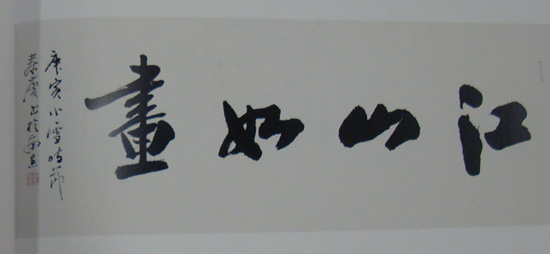 江山如畫
庚寅小雪時節
春慶書於南京